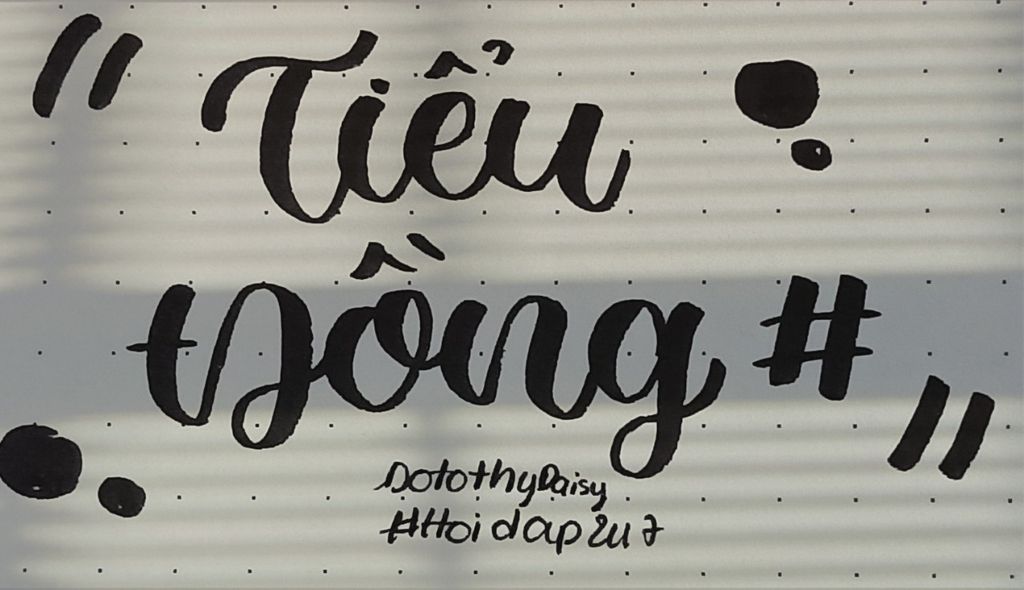 "Tiểu
Đồng #"
DotothyDaisy
#Hoidap247